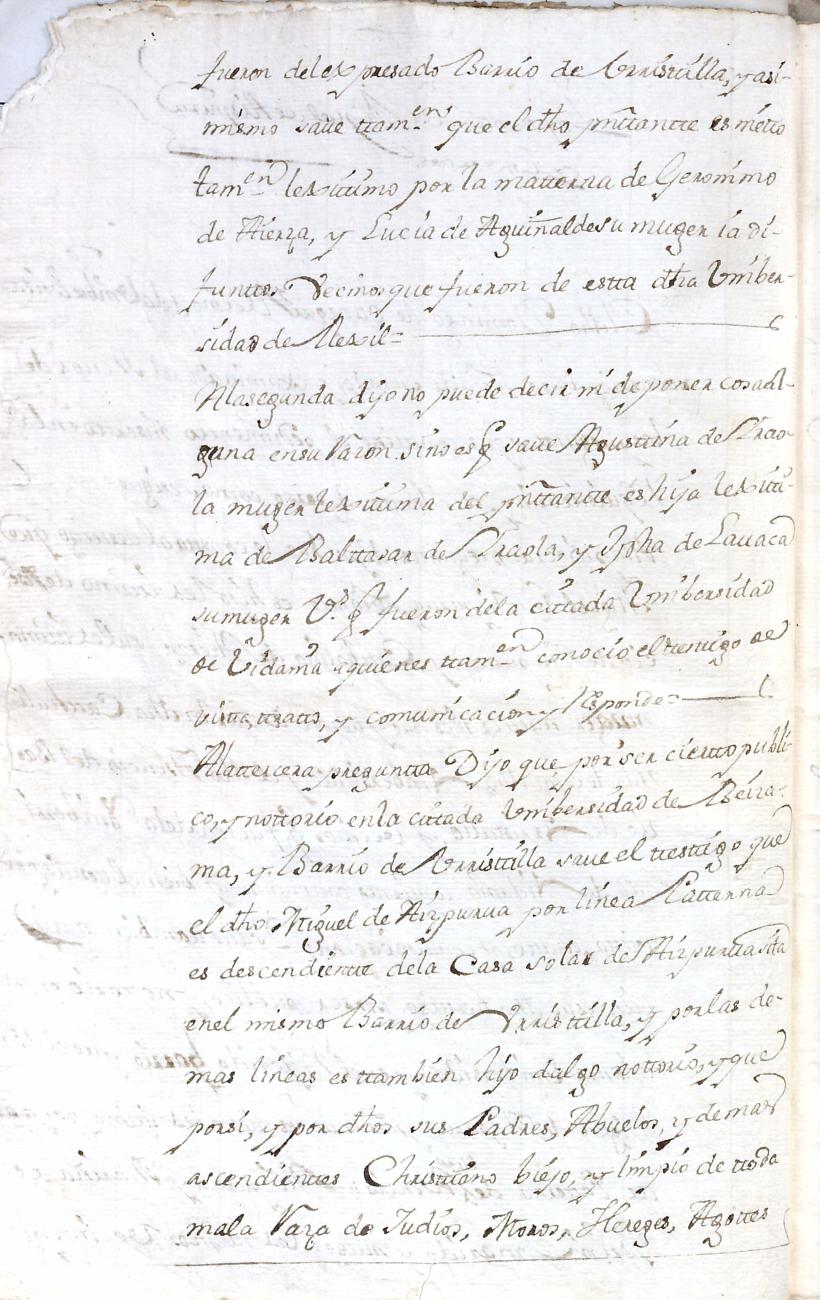 fueron del expresado Barrio de Vrristilla, y asi-
mismo save ttam.en que el dho pnttantte es nietto
tam.en lexitimo por la matterna de Geronimo
de Aierza, y Lucia de Aguiñalde su muger ia di-
funttos Vecinos que fueron de estta dha Vniber-
sidad de Rexil=
A la segunda dijo no puede decir ni deponer cosa al-
guna en su Razon sino es q save Agusttina de Vrao-
la muger lexittima del pnttantte es hija lexitti-
ma de Balttasar de Vraola, y Jpha de Lavaca
su muger V.s q fueron de la cittada Vnibersidad
de Vidama a quienes ttam.en conocio el testtigo de
vista, tratto, y comunicacion y Responde=
A la ttercera preguntta Dijo que por ser ciertto publi-
co, y nottorio en la cittada Vnibersidad de Beiza-
ma, y Barrio de Vrristtilla save el ttesttigo que
el dho Miguel de Aizpurua por linea Patterna
es descendientte de la Casa solar de Aizpurua sita
en el mismo Barrio de Vrristtilla, y por las de-
mas lineas es ttambien hijo dalgo nottorio, y que
por si, y por dhos sus Padres, Abuelos, y demas
ascendienttes Christtiano biejo, y limpio de ttoda
mala Raza de Judios, Moros, Hereges, Agottes